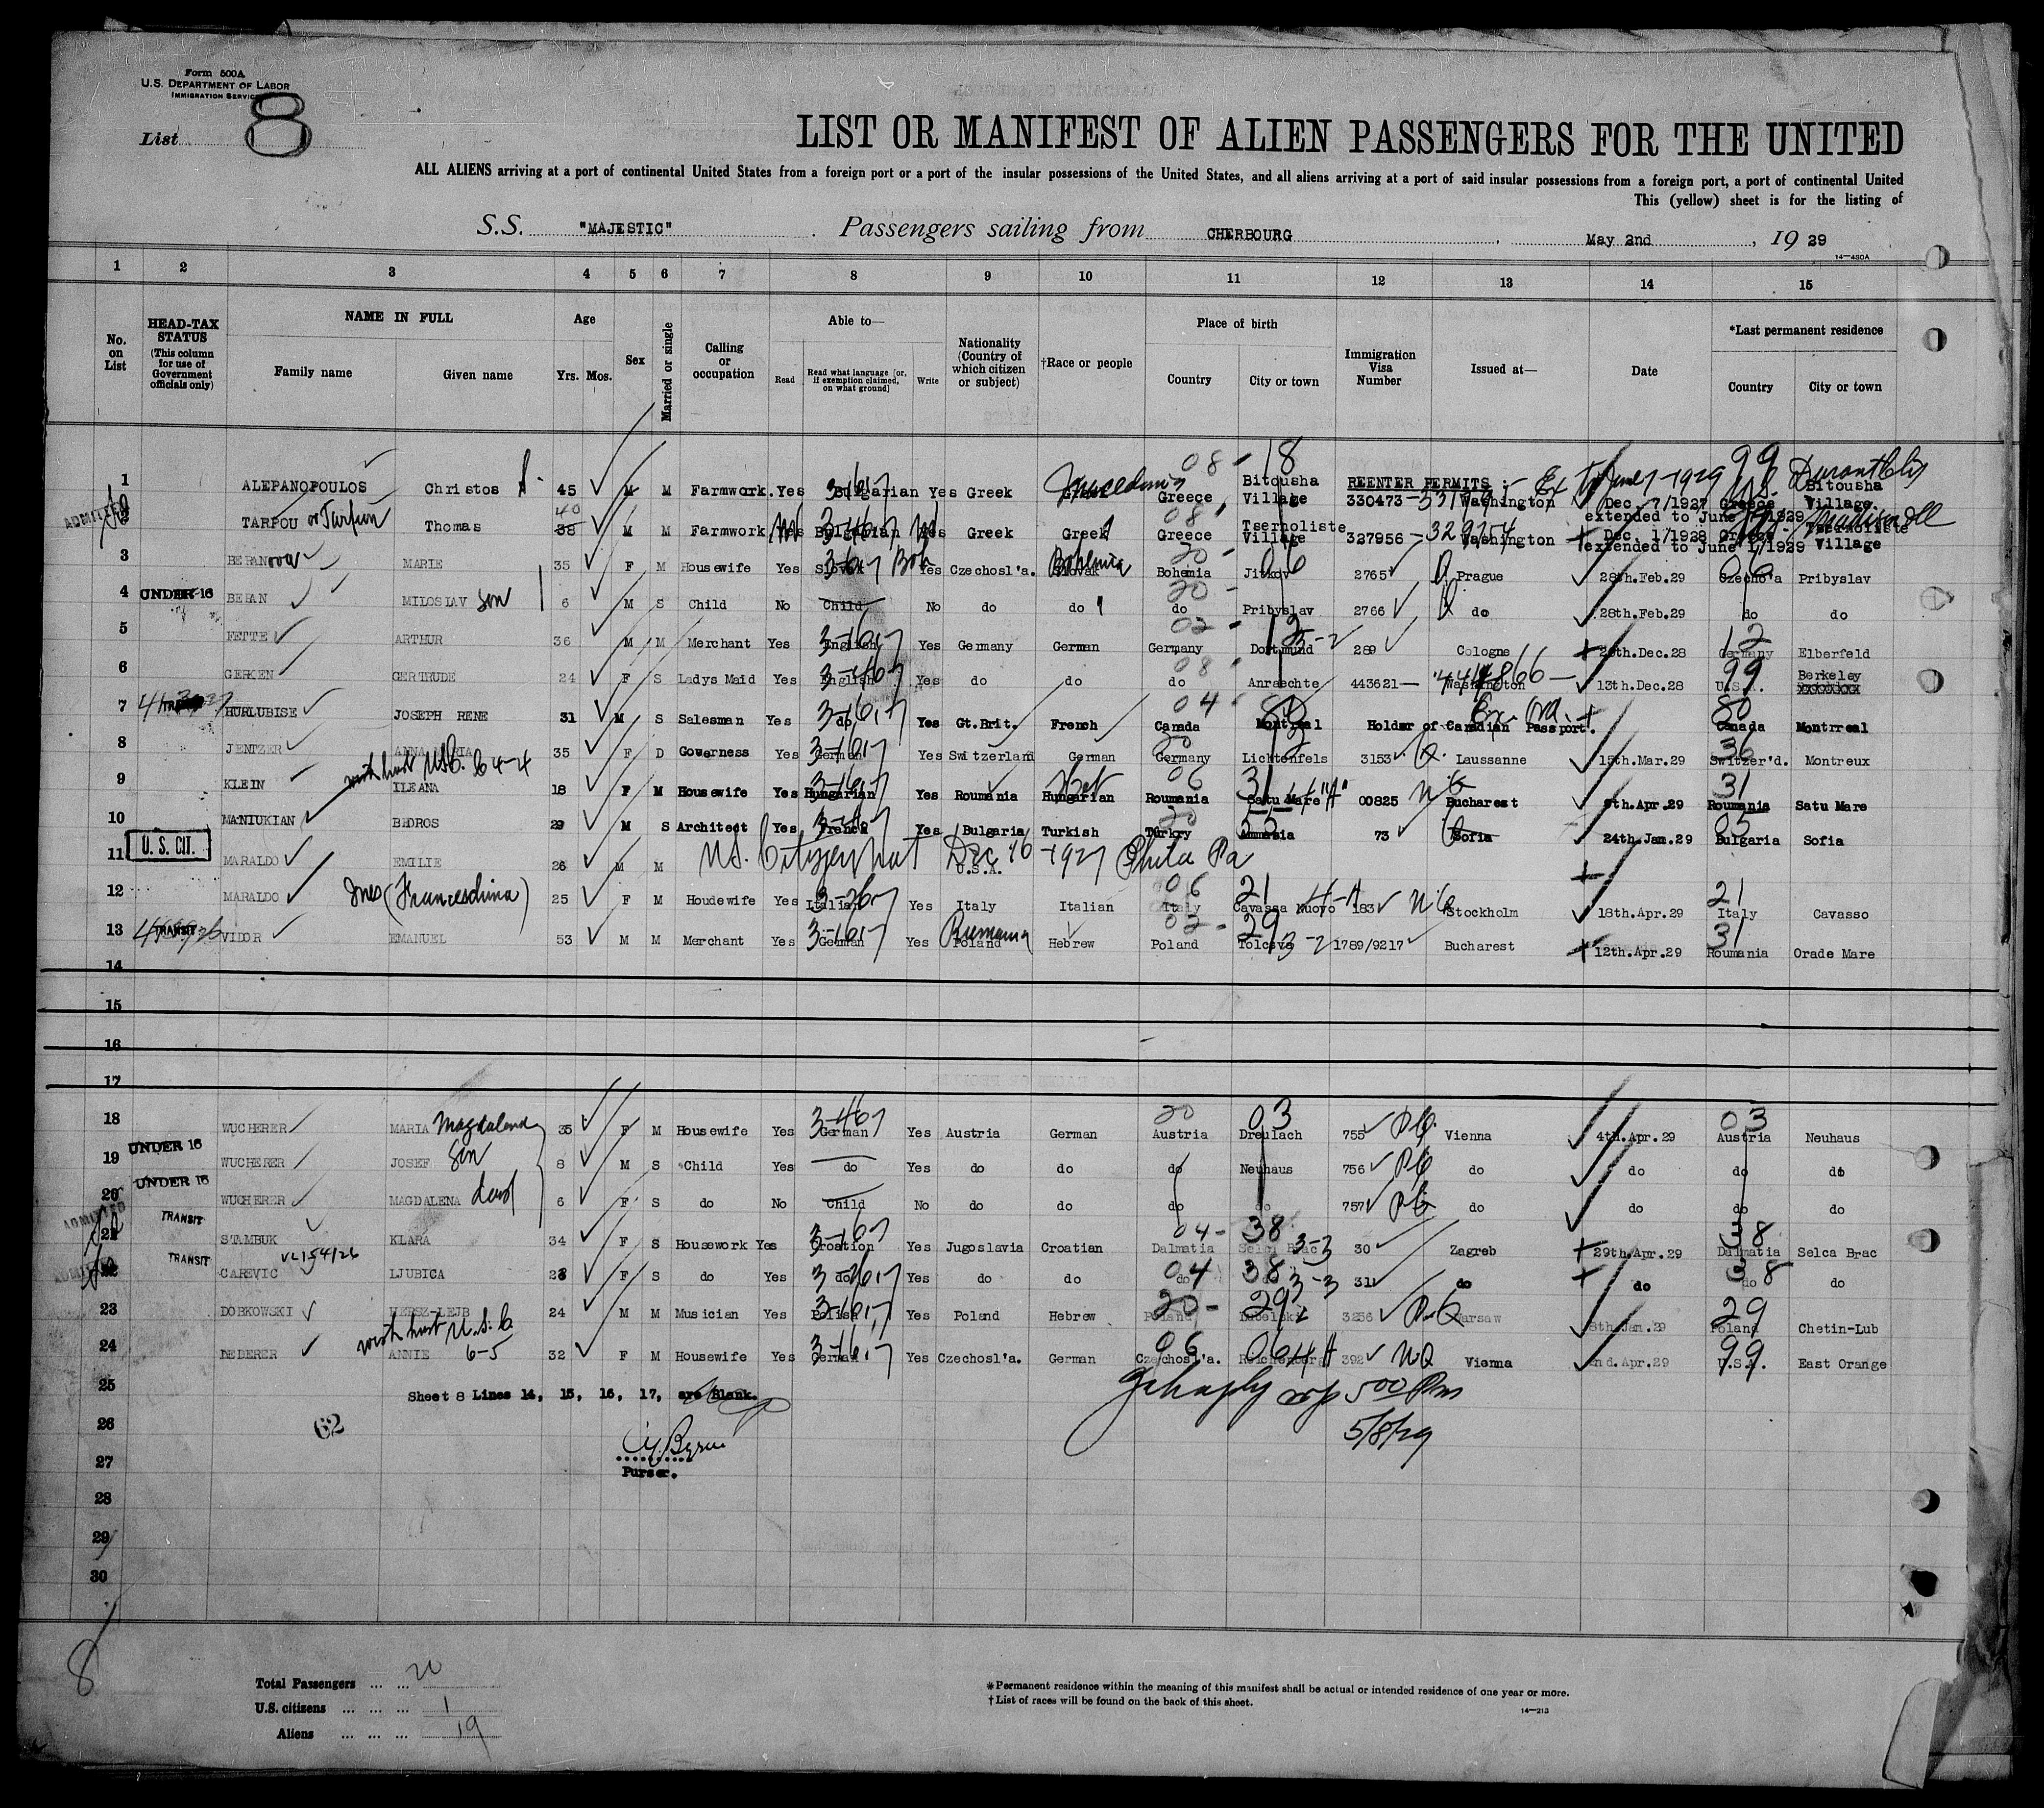 Form 500A
U.S. DEPARTMENT OF LABOR
IMMIGRATION SERVICE
List 8
LIST OR MANIFEST OF ALIEN PASSENGERS FOR THE UNITED
ALL ALIENS arriving at a port of continental United States from a foreign port or a port of the insular possessions of the United States, and all aliens arriving at a port of said insular possessions from a foreign port, a port of continental United
This (yellow) sheet is for the listing of
S.S. "MAJESTIC" . Passengers sailing from CHERBOURG , May 2nd , 19 29
14—480A
1 2 3 4 5 6 7 8 9 10 11 12 13 14 15
No. on List
HEAD-TAX STATUS (This column for use of Government officials only)
NAME IN FULL
Family name Given name
Age
Yrs. Mos.
Sex
Married or single
Calling or occupation
Able to—
Read Read what language [or, if exemption claimed, on what ground] Write
Nationality (Country of which citizen or subject)
†Race or people
Place of birth
Country City or town
Immigration Visa Number
Issued at—
Date
*Last permanent residence
Country City or town
1 ALEPANOPOULOS Christos 45 M M Farmwork. Yes Bulgarian Yes Greek Greece Bitousha Village REENTER PERMITS 330473 Washington Dec. 7/1927 extended to June 1929 Greece Bitousha Village.
ADMITTED 2 TARPOU or Tarpun Thomas 40 38 M M Farmwork Yes Bulgarian Yes Greek Greek Greece Tsernoliste Village 327956 - 329254 Washington Dec. 1/1928 extended to June 1/1929 Greece Tsernoliste Village
3 BERAN ova MARIE 35 F M Housewife Yes Slovak Boh Yes Czechosl'a. Slovak Bohemia Bohemia Jitkov 06 2765 Prague 28th.Feb.29 Czecho'a 06 Pribyslav
4 UNDER 16 BERAN MILOSLAV son 6 M S Child No Child No do do do Pribyslav 2766 do 28th.Feb.29 do do
5 FETTE ARTHUR 36 M M Merchant Yes English Yes Germany German Germany Dortmund 12 289 Cologne 28th.Dec.28 Germany 12 Elberfeld
6 GERKEN GERTRUDE 24 F S Ladys Maid Yes English Yes do do do Anraechte 443621 Washington 13th.Dec.28 U.S.A. 99 Berkeley
7 HURLUBISE JOSEPH RENE 31 M S Salesman Yes do Yes Gt.Brit. French Canada Montreal Holder of Canadian Passport. Canada Montrreal
8 JENTZER ANNA MARIA 35 F D Governess Yes German Yes Switzerland German Germany Lichtenfels 3153 Lausanne 15th.Mar.29 Switzer'd. 36 Montreux
with husb U.S.C. 6 4-4
9 KLEIN ILEANA 18 F M Housewife Yes Hungarian Yes Roumania Hungarian Roumania 06 Satu Mare 31 00825 Bucharest 9th.Apr.29 Roumania 31 Satu Mare
10 MANIUKIAN BEDROS 29 M S Architect Yes French Yes Bulgaria Turkish Turkry Ammasia 73 Sofia 24th.Jan.29 Bulgaria 05 Sofia
U. S. CIT.
11 MARALDO EMILIE 26 M M U.S. Citizen Nat Dec 16 - 1927 Phila Pa U.S.A.
12 MARALDO Ines (Franceschina) 25 F M Houdewife Yes Italian Yes Italy Italian Italy 06 Cavassa Nuovo 21 183 Stockholm 18th.Apr.29 Italy 21 Cavasso
13 TRANSIT VIDOR EMANUEL 53 M M Merchant Yes German Yes Poland Rumania Hebrew Poland 02 Tolcsva 29 1789/9217 Bucharest 12th.Apr.29 Roumania 31 Orade Mare
14
15
16
17
18 WUCHERER MARIA Magdalena 35 F M Housewife Yes German Yes Austria German Austria 20 Dreulach 03 755 Vienna 4th.Apr.29 Austria 03 Neuhaus
19 UNDER 16 WUCHERER JOSEF Son 8 M S Child Yes do Yes do do do Neuhaus 756 do do do do
20 UNDER 16 WUCHERER MAGDALENA 6 F S do No Child No do do do do 757 do do do do
ADMITTED 21 TRANSIT STAMBUK KLARA 34 F S Housework Yes Croation Yes Jugoslavia Croatian Dalmatia 04 Selca Brac 38 3-3 30 Zagreb 29th.Apr.29 Dalmatia 38 Selca Brac
ADMITTED 22 TRANSIT CAREVIC LJUBICA 28 F S do Yes do Yes do do do 04 38 3-3 31 do do do 38 do
23 DOBKOWSKI HERSZ-LEJB 24 M M Musician Yes Polish Yes Poland Hebrew Poland 20 Lubelski 29 3256 Warsaw 8th.Jan.29 Poland 29 Chetin-Lub
with husb U.S.C. 6-5
24 DEDERER ANNIE 32 F M Housewife Yes German Yes Czechosl'a. German Czechosl'a. 06 Reichenberg 392 NQ Vienna 2nd.Apr.29 U.S.A. 99 East Orange
25 Sheet 8 Lines 14, 15, 16, 17, are Blank.
5 00 Pm
26 62 5/8/29
27 Purser.
28
29
30
8
Total Passengers ... ... 20
U.S. citizens ... ... ... 1
Aliens ... ... ... 19
*Permanent residence within the meaning of this manifest shall be actual or intended residence of one year or more.
†List of races will be found on the back of this sheet.
14—213